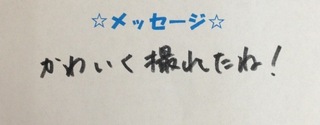 ☆メッセージ☆
かわいく撮れたね!